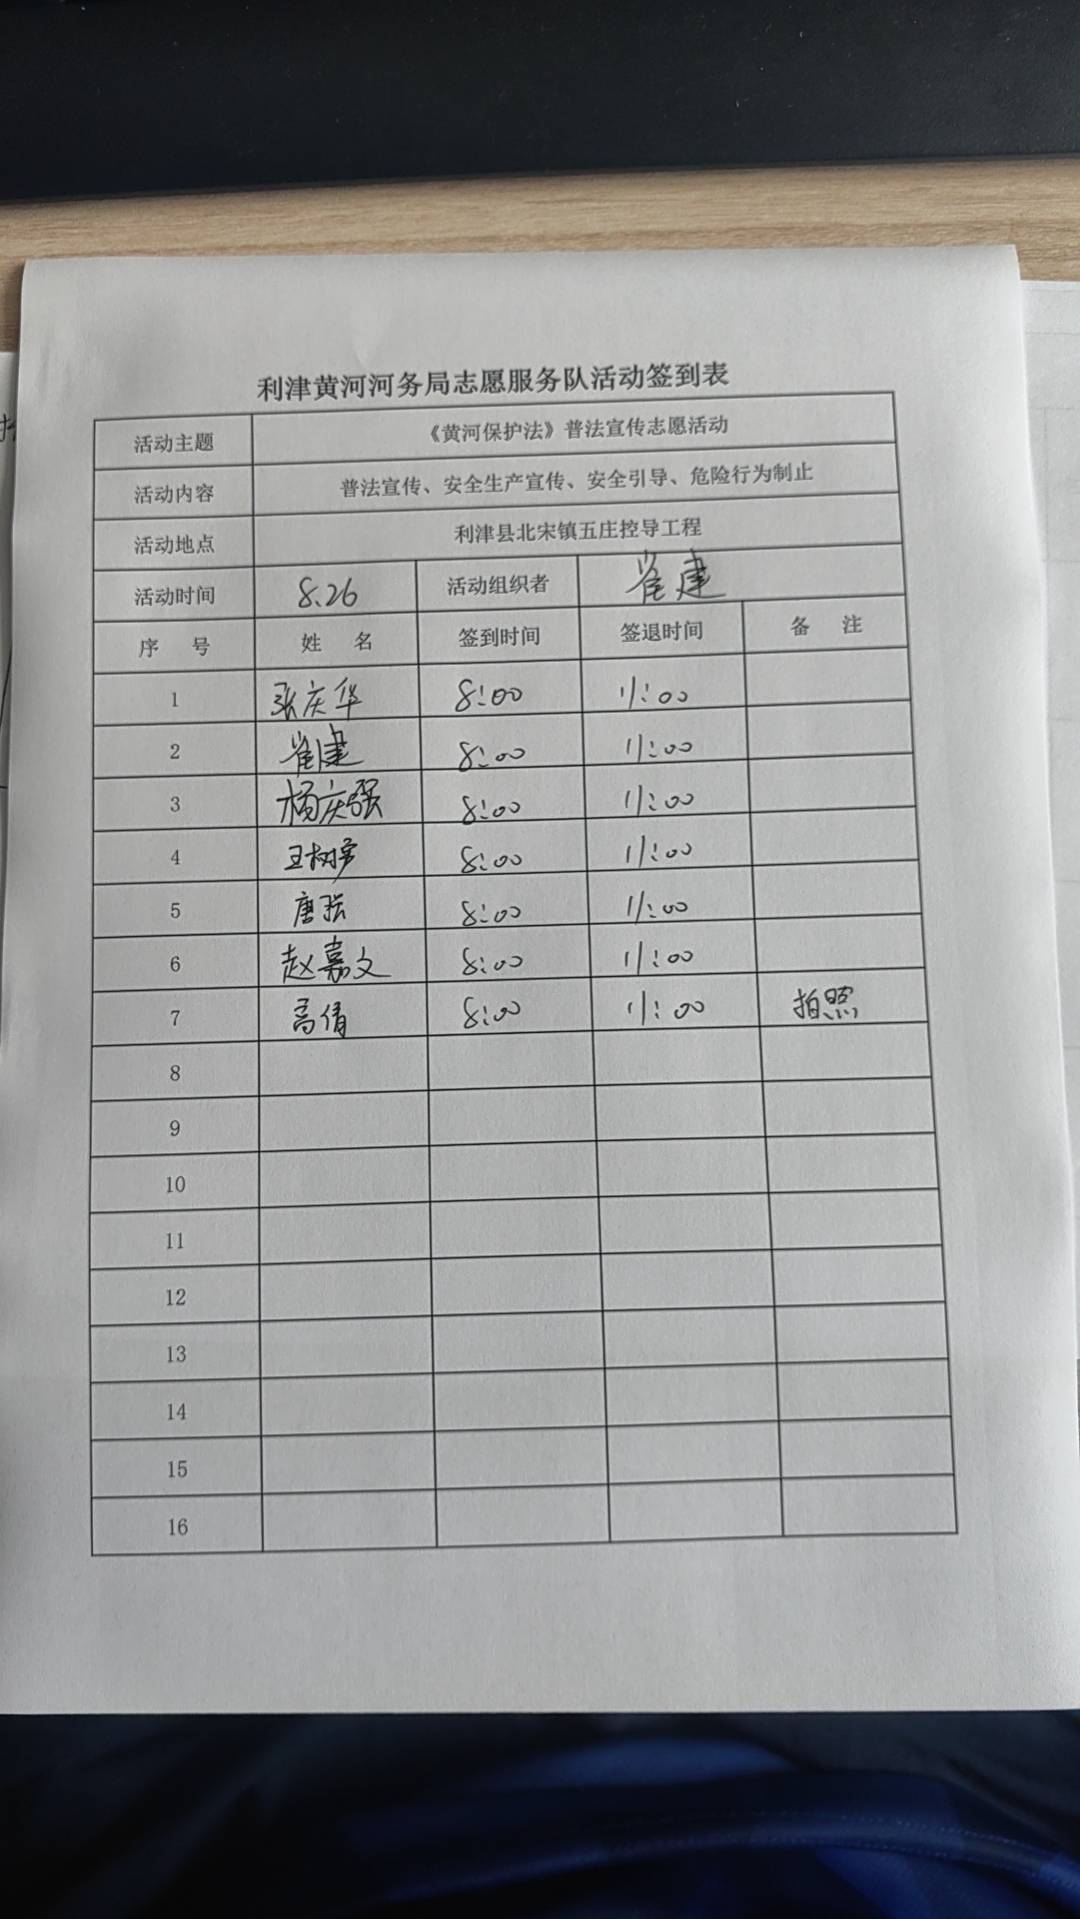 利津黄河河务局志愿服务队活动签到表
活动主题 《黄河保护法》普法宣传志愿活动
活动内容 普法宣传、安全生产宣传、安全引导、危险行为制止
活动地点 利津县北宋镇五庄控导工程
活动时间 8.26 活动组织者 崔建
序 号 姓 名 签到时间 签退时间 备 注
1 张庆华 8:00 11:00
2 崔建 8:00 11:00
3 杨庆强 8:00 11:00
4 王树 8:00 11:00
5 唐强 8:00 11:00
6 赵嘉文 8:00 11:00
7 高倩 8:00 11:00 拍照
8
9
10
11
12
13
14
15
16